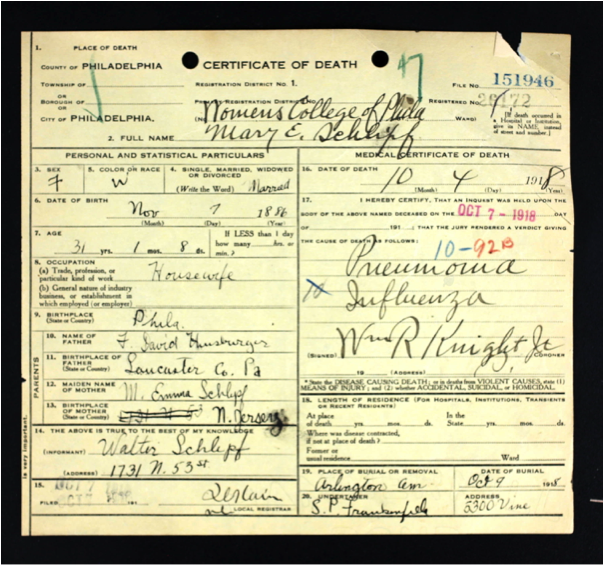 1. PLACE OF DEATH
COUNTY OF PHILADELPHIA
CERTIFICATE OF DEATH
47
TOWNSHIP OF
OR
BOROUGH OF
OR
CITY OF PHILADELPHIA.
REGISTRATION DISTRICT NO. 1.
FILE NO. 151946
PRIMARY REGISTRATION DISTRICT NO.
REGISTERED NO.
(No. Womens College of Phila WARD)
[If death occurred in a Hospital or Institution, give its NAME, instead of street and number.]
2. FULL NAME Mary E. Schlipf
PERSONAL AND STATISTICAL PARTICULARS
3. SEX F
5. COLOR OR RACE W
4. SINGLE, MARRIED, WIDOWED OR DIVORCED
(Write the Word) Married
6. DATE OF BIRTH
Nov 7 1886
(Month) (Day) (Year)
7. AGE
31 yrs. 1 mos. 8 ds.
IF LESS than 1 day how many hrs. or min.?
8. OCCUPATION
(a) Trade, profession, or particular kind of work Housewife
(b) General nature of industry business, or establishment in which employed (or employer)
9. BIRTHPLACE
(State or County) Phila.
PARENTS
10. NAME OF FATHER F. David Hunsburger
11. BIRTHPLACE OF FATHER
(State or County) Lancaster Co. Pa
12. MAIDEN NAME OF MOTHER M. Emma Schlipf
13. BIRTHPLACE OF MOTHER
(State or County) N. Jersey
14. THE ABOVE IS TRUE TO THE BEST OF MY KNOWLEDGE
(INFORMANT) Walter Schlipf
(ADDRESS) 1731 N. 53 st
15.
FILED OCT 7 191
LOCAL REGISTRAR
is very important.
MEDICAL CERTIFICATE OF DEATH
16. DATE OF DEATH
10 4 1918
(Month) (Day) (Year)
17. I HEREBY CERTIFY, THAT AN INQUEST WAS HELD UPON THE
BODY OF THE ABOVE NAMED DECEASED ON THE OCT 7 - 1918 DAY
OF 191 ; THAT THE JURY RENDERED A VERDICT GIVING
THE CAUSE OF DEATH AS FOLLOWS:
10-92B
Pneumonia
Influenza
(SIGNED) Wm R. Knight, Jr CORONER
19 (ADDRESS)
* State the DISEASE CAUSING DEATH; or in deaths from VIOLENT CAUSES, state (1) MEANS OF INJURY; and (2) whether ACCIDENTAL, SUICIDAL, or HOMICIDAL.
18. LENGTH OF RESIDENCE (FOR HOSPITALS, INSTITUTIONS, TRANSIENTS OR RECENT RESIDENTS).
At place of death yrs. mos. ds. In the State yrs. mos. ds.
Where was disease contracted, if not at place of death?
Former or usual residence Ward
19. PLACE OF BURIAL OR REMOVAL
Arlington Cem.
DATE OF BURIAL
Oct 9 1918
20. UNDERTAKER
S.P. Frankenfield
ADDRESS
5300 Vine